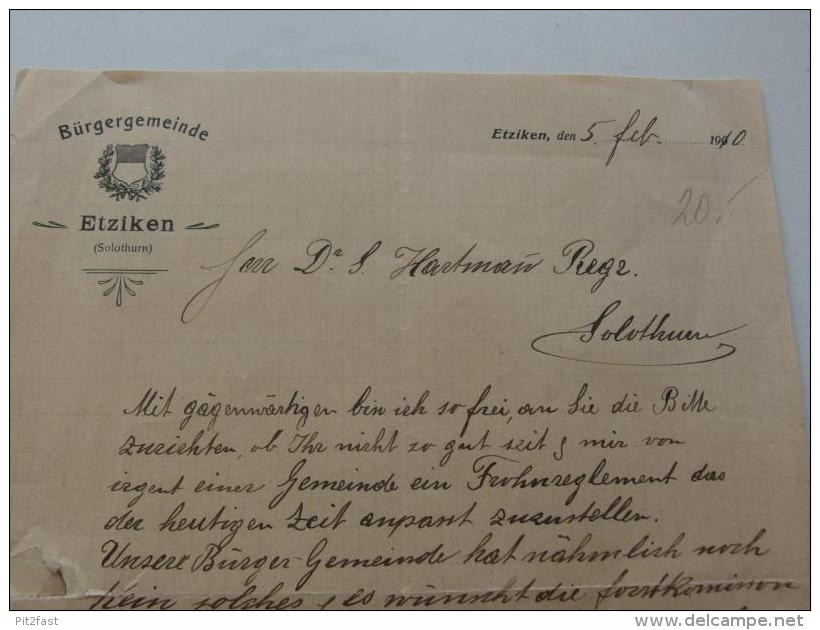 Bürgergemeinde
Etziken
(Solothurn)
Etziken, den 5. Feb. 1910
20.-
Herr Dr. S. Hartmañ Regr.
Solothurn
Mit gägenwärtigen bin ich so frei, an Sie die Bitte
zurichten, ob Ihr nicht so gut seit & mir von
irgent einer Gemeinde ein Frohnreglement das
der heutigen Zeit anpasst zuzustellen.
Unsere Bürger-Gemeinde hat nähmlich noch
kein solches & es wünscht die forstkomission
Pit2fast
www.delcampe.net